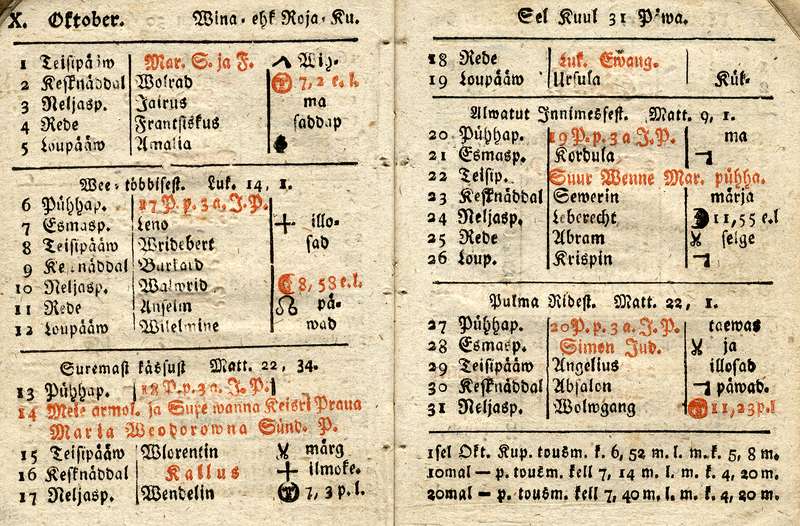 X. Oktober. Wina- ehk Roja-Ku.
1 Teisipääw Mar. S. ja F. Wih-
2 Kesknäddal Wolrad 7, 2 e. l.
3 Neljasp. Jairus ma
4 Rede Frantsiskus saddap
5 Loupääw Amalia
Wee-többisest. Luk. 14, 1.
6 Pühhap. 17 P. p. 3 a. J. P.
7 Esmasp. Leno illo-
8 Teisipääw Wridebert sad
9 Kesknäddal Burkard
10 Neljasp. Walwrid 8, 58 e. l.
11 Rede Anselm pä-
12 Loupääw Wilelmine wad
Suremast kässust Matt. 22, 34.
13 Pühhap. 18 P. p. 3 a. J. P.
14 Meie armol. ja Sure wanna Keisri Praua
Maria Weodorowna Sünd. P.
15 Teisipääw Wlorentin märg
16 Kesknäddal Kallus ilmoke.
17 Neljasp. Wendelin 7, 3 p. l.
Sel Kuul 31 Päwa.
18 Rede Luk. Ewang.
19 Loupääw Ursula Kül-
Alwatut Innimesfest. Matt. 9, 1.
20 Pühhap. 19 P. p. 3 a J. P. ma
21 Esmasp. Kordula
22 Teisip. Suur Wenne Mar. pühha.
23 Kesknäddal Sewerin märja
24 Neljasp. Leberecht 11, 55 e. l
25 Rede Abram selge
26 Loup. Krispin
Pulma Ridest. Matt. 22, 1.
27 Pühhap. 20 P. p. 3 a. J. P. taewas
28 Esmasp. Simon Jud. ja
29 Teisipääw Angelius illosad
30 Kesknäddal Absalon päwad.
31 Neljasp. Wolwgang 11, 23 p. l
1sel Okt. Kup. tousm. k. 6, 52 m. l. m. k. 5, 8 m.
10mal — p. tousm. kell 7, 14 m. l. m. k. 4, 20 m.
20mal — p. tousm. kell 7, 40 m. l. m. k. 4, 20 m.